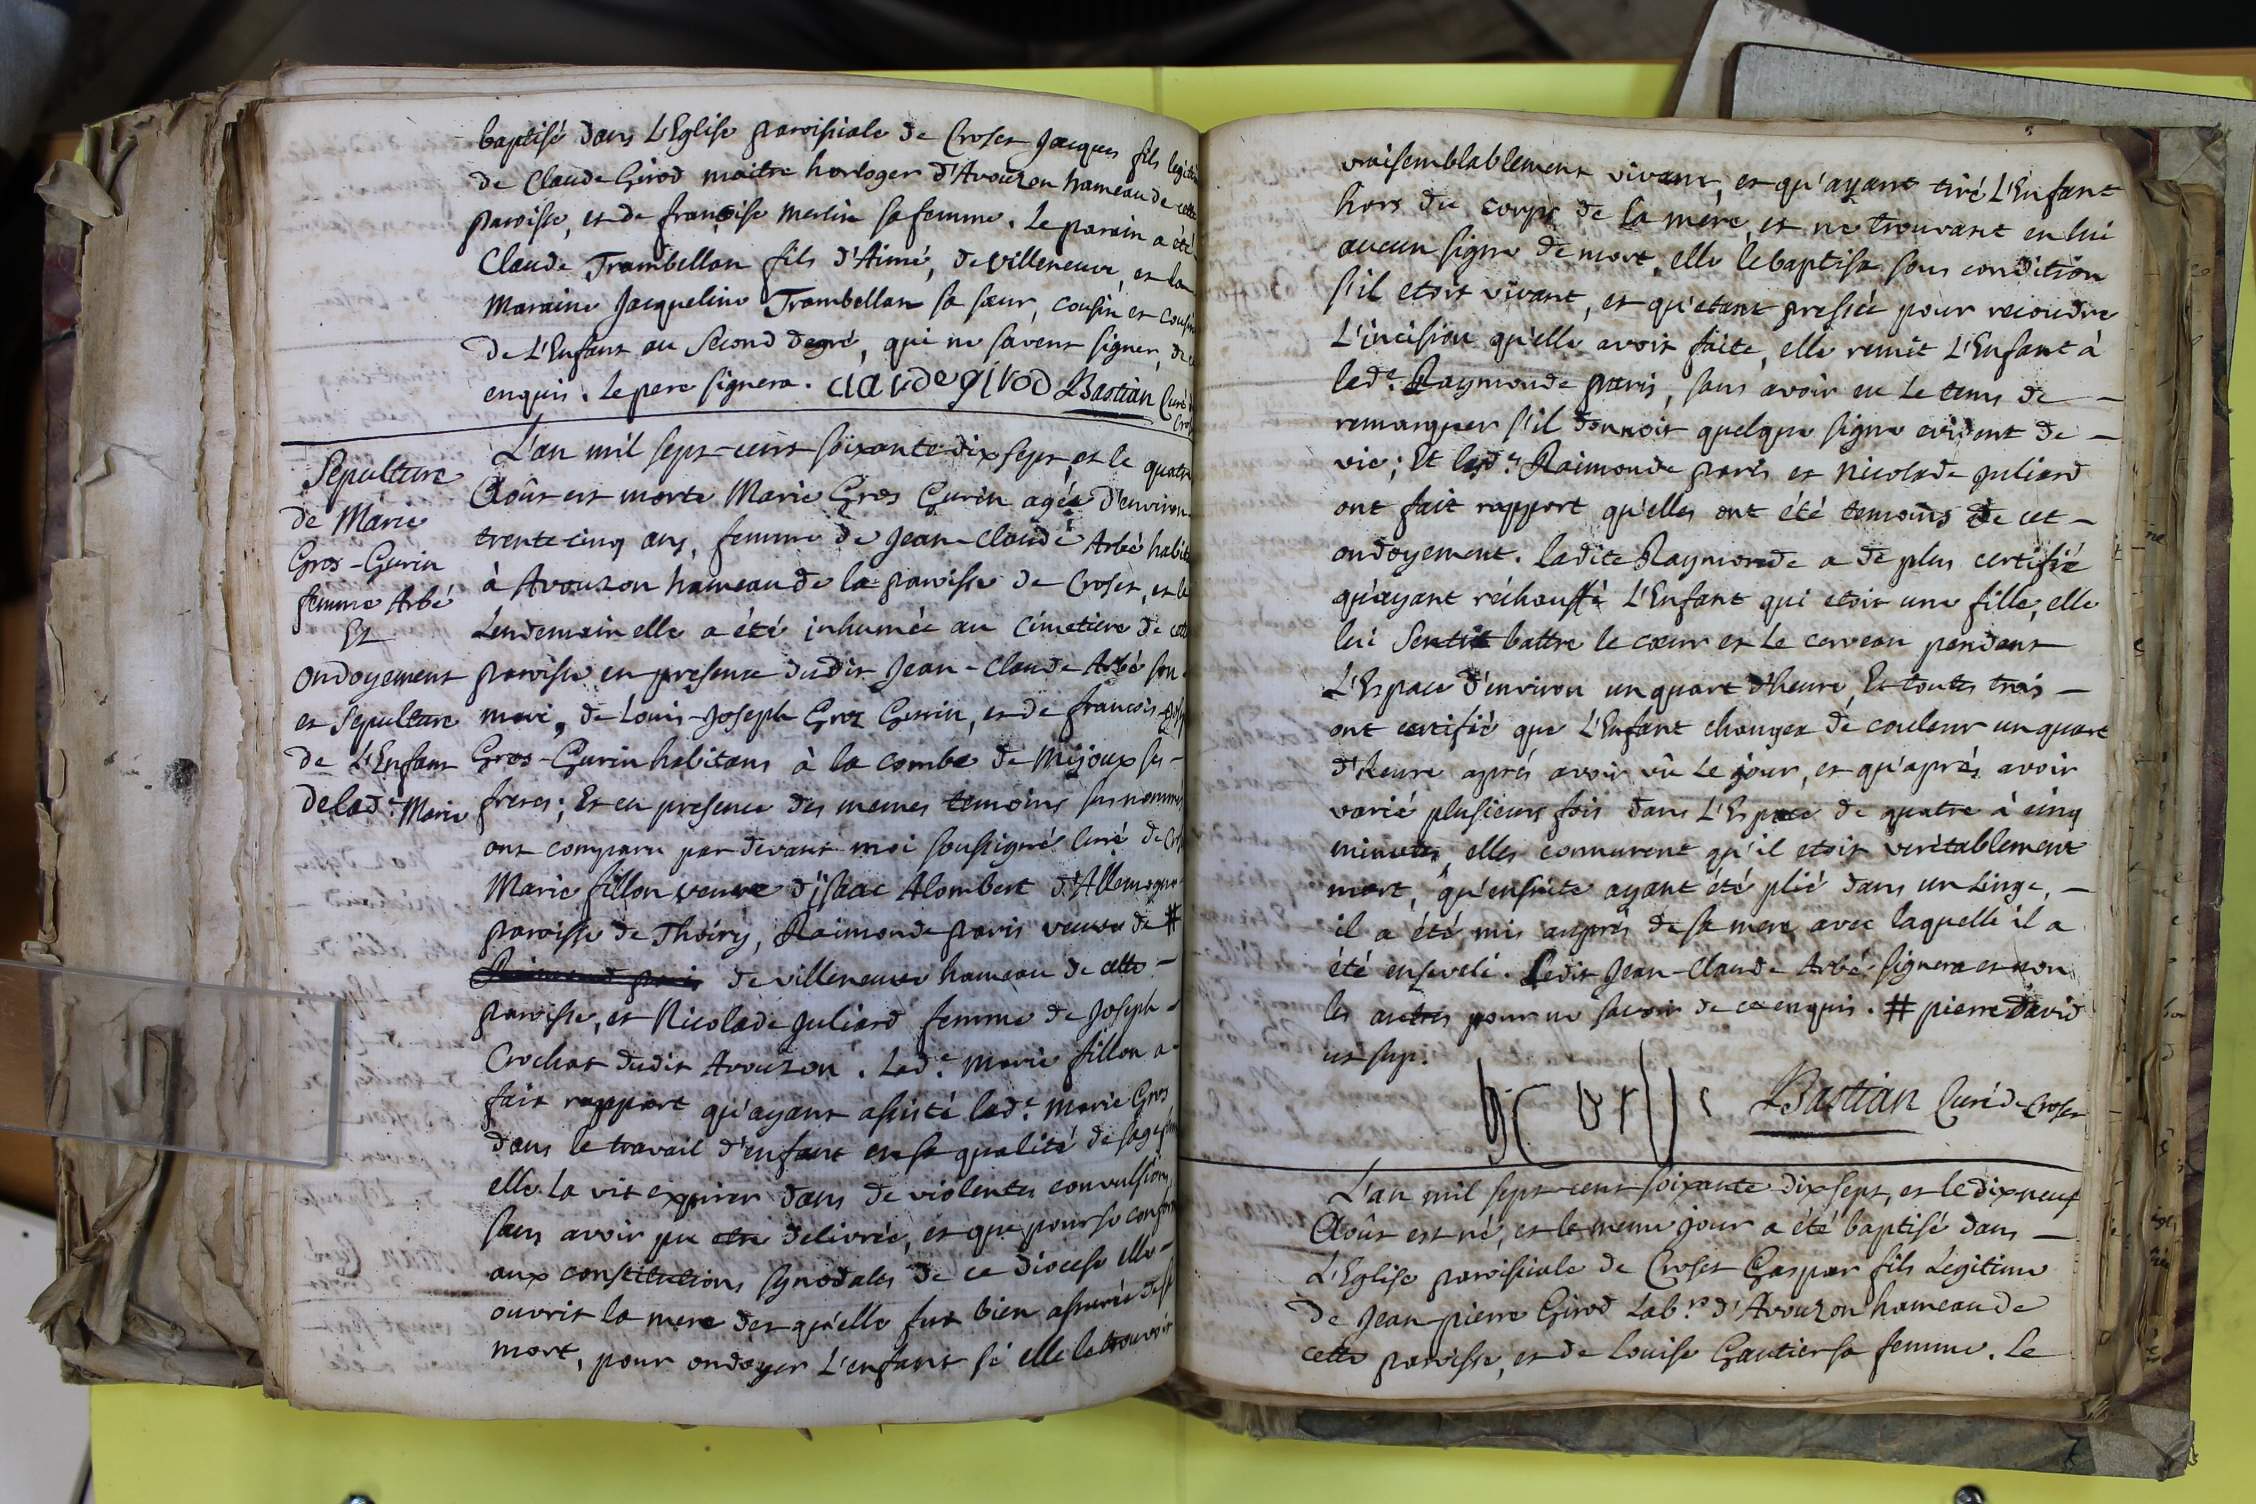 baptisé dans L'Eglise paroissiale de Croset Jacques fils legiti
de Claude Girod maitre horloger d'Avouzon hameau de cette
paroisse, et de françoise Merlin sa femme. Le parain a été
Claude Trambellan fils d'Aimé, de Villeneuve, et la
Maraine Jacqueline Trambellan sa sœur, cousin et cousin
de L'Enfant au Second degré, qui ne savent signer, de
enquis. Le pere signera. claude girod Bastian Curé de
Cros
L'an mil sept-cent soixante dix sept, et le quatre
Août est morte Marie Gros Gurin agée d'environ
trente cinq ans, femme de Jean-Claude Arbé habit
à Avouzon hameau de la paroisse de Croset, et le
Lendemain elle a été inhumée au Cimetiere de cette
paroisse en presence dudit Jean-Claude Arbé son
mari, de Louis-Joseph Gros Gurin, et de francois-Jose
Gros-Gurin habitans à la combe de Mijoux ses -
freres; Et en presence des memes temoins sus nommés
ont comparu par devant moi soussigné Curé de Cros
Marie fillon veuve d'isaac Alombert d'Allemogne
paroisse de Thoiry, Raimonde paris veuve de #
Raimond paris de villeneuve hameau de cette -
paroisse, et Nicolade Juliard femme de Joseph -
Crochat dudit Avouzon. Lad.e Marie fillon a
fait rapport qu'ayant assisté lad.e Marie Gros
dans le travail d'enfant en sa qualité de sage fem
elle la vit expirer dans de violentes convulsions
sans avoir pu etre delivrée, et que pour se conform
aux constitutions synodales de ce diocese elle -
ouvrit la mere des qu'elle fut bien assurée de sa
mort, pour ondoyer L'enfant si elle le trouvoit
Sepulture
de Marie
Gros-Gurin
femme Arbé
Et
ondoyement
et Sepulture
de L'Enfant
de lad.e Marie
vraisemblablement vivant, et qu'ayant tiré L'Enfant
hors du corps de la mere, et ne trouvant en lui
aucun signe de mort, elle le baptisa sous condition
s'il etoit vivant, et qu'etant pressée pour recoudre
L'incision qu'elle avoit faite, elle remit L'Enfant à
lad.e Raymonde paris, sans avoir eu le tems de -
remarquer s'il donnoit quelque signe evident de -
vie; Et lesd.es Raimonde paris et Nicolade Juliard
ont fait rapport qu'elles ont été temoins de cet -
ondoyement. Ladite Raymonde a de plus certifié
qu'ayant réchauffé L'Enfant qui etoit une fille, elle
lui Sentit battre le cœur et le cerveau pendant
L'Espace d'environ un quart d'heure, Et toutes trois -
ont certifié que L'Enfant changea de couleur un quart
d'heure aprés avoir vû le jour, et qu'aprés avoir
varié plusieurs fois dans L'Espace de quatre à cinq
minutes, elles connurent qu'il etoit veritablement
mort, qu'ensuite ayant été plié dans un linge, -
il a été mis auprès de sa mere avec laquelle il a
été enseveli. Ledit Jean-Claude Arbé signera et non
les autres pour ne savoir de ce enquis. # pierre David
ut sup.
Bastian Curé de Croset
L'an mil sept-cent soixante dix sept, et le dix neuf
Août est né, et le meme jour a été baptisé dans -
L'Eglise paroissiale de Croset Gaspar fils Legitime
de Jean pierre Girod Lab.r d'Avouzon hameau de
cette paroisse, et de Louise Gautier sa femme. Le